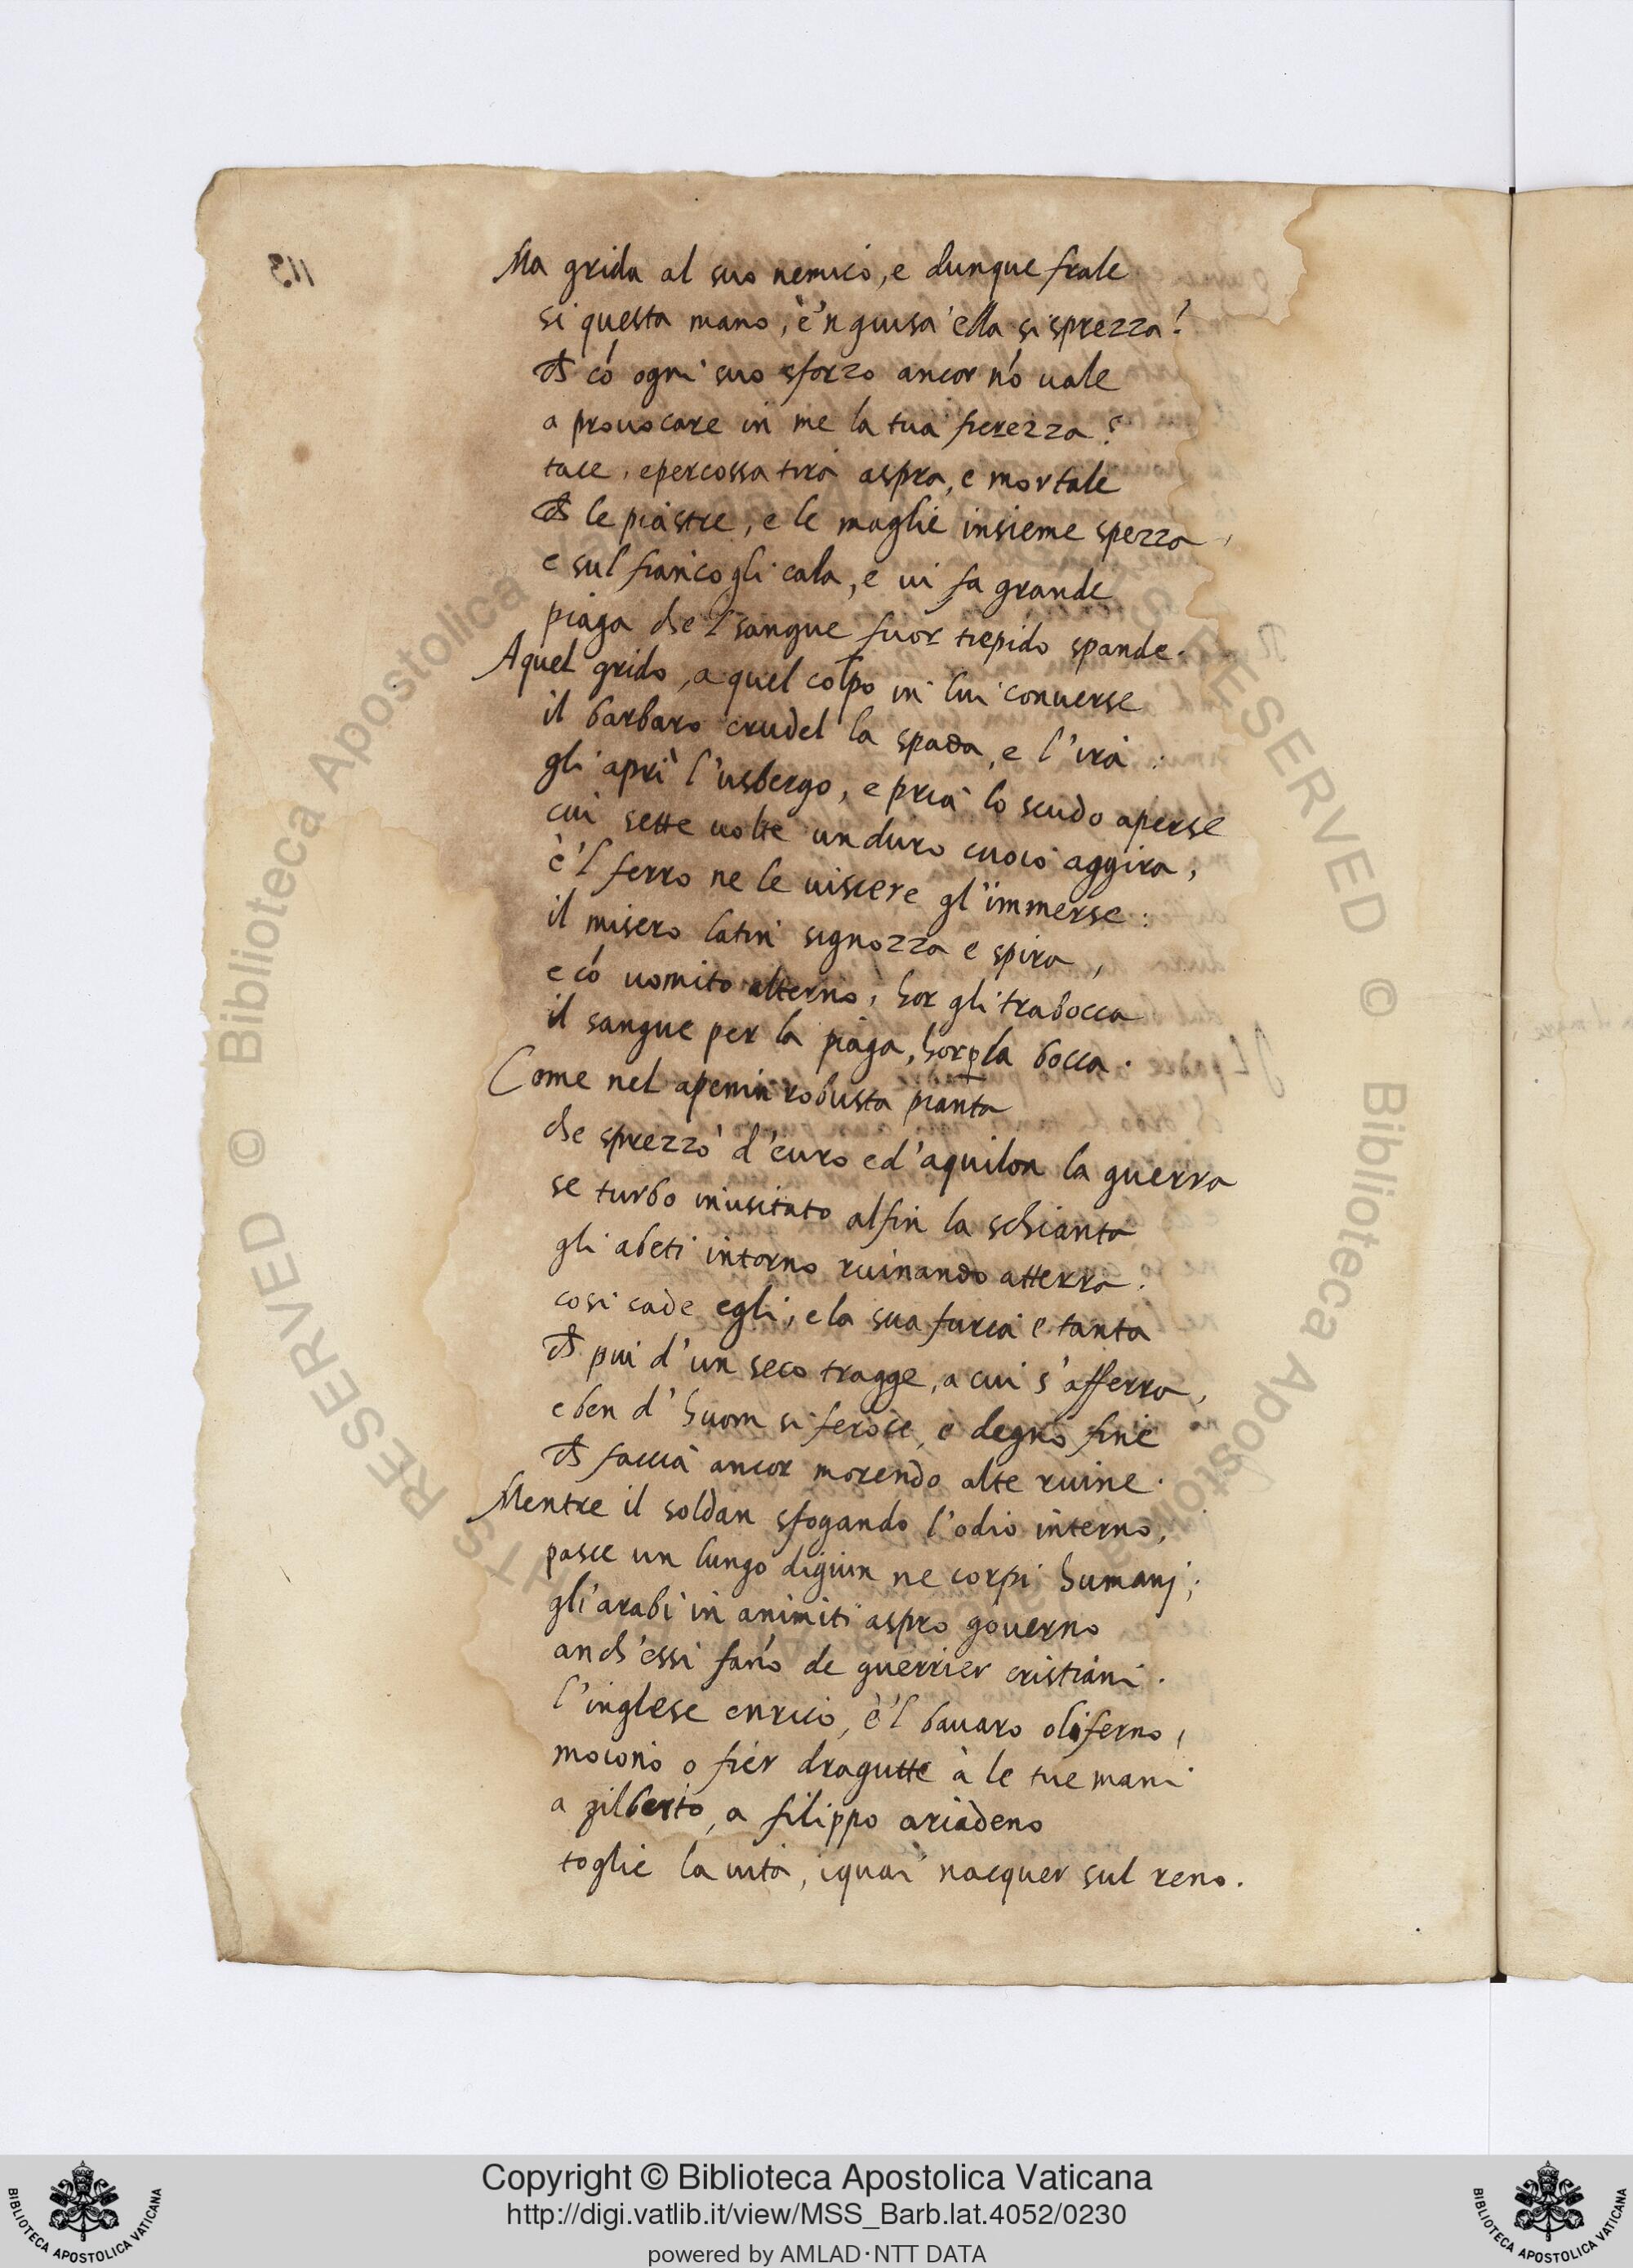 Ma grida al suo nemico, e dunque frale
si questa mano, è 'n guisa ella si sprezza?
Ch có ogni suo sforzo ancor nó uale
a prouocare in me la tua fierezza?
tace, e percossa tira aspra, e mortale
Ch le piastre, e le maglie insieme spezza,
e sul fianco gli cala, e ui fa grande
piaga che 'l sangue fuor tiepido spande.
A quel grido, a quel colpo in lui conuerse
il barbaro crudel la spada, e l'ira:
gli aprì l'usbergo, e pria lo scudo aperse
cui sette uolte un duro cuoio aggira,
è 'l ferro ne le uiscere gl'immerse:
il misero latin signozza e spira,
e có uomito alterno, hor gli trabocca
il sangue per la piaga, hor ꝑ la bocca.
Come nel apenin robusta pianta
che sprezzò d'euro e d'aquilon la guerra
se turbo inusitato alfin la schianta
gli abeti intorno ruinando atterra:
cosi cade egli, e la sua furia e tanta
Ch piu d'un seco tragge, a cui s'afferra,
e ben d'huom si feroce, e degno fine
Ch faccia ancor morendo alte ruine.
Mentre il soldan sfogando l'odio interno,
pasce un lungo digiun ne corpi humanj;
gli arabi in animiti aspro gouerno
anch'essi fanó de guerrier cristiani.
l'inglese enrico, è 'l bauaro oliferno,
mocono o fier dragutte à le tue mani
a gilberto, a filippo ariadeno
toglie la uita, i quai nacquer sul reno.
113
RESERVED © Biblioteca Apostolica
RESERVED © Biblioteca Apostolica
Copyright © Biblioteca Apostolica Vaticana
http://digi.vatlib.it/view/MSS_Barb.lat.4052/0230
powered by AMLAD·NTT DATA
BIBLIOTECA APOSTOLICA VATICANA
BIBLIOTECA APOSTOLICA VATICANA